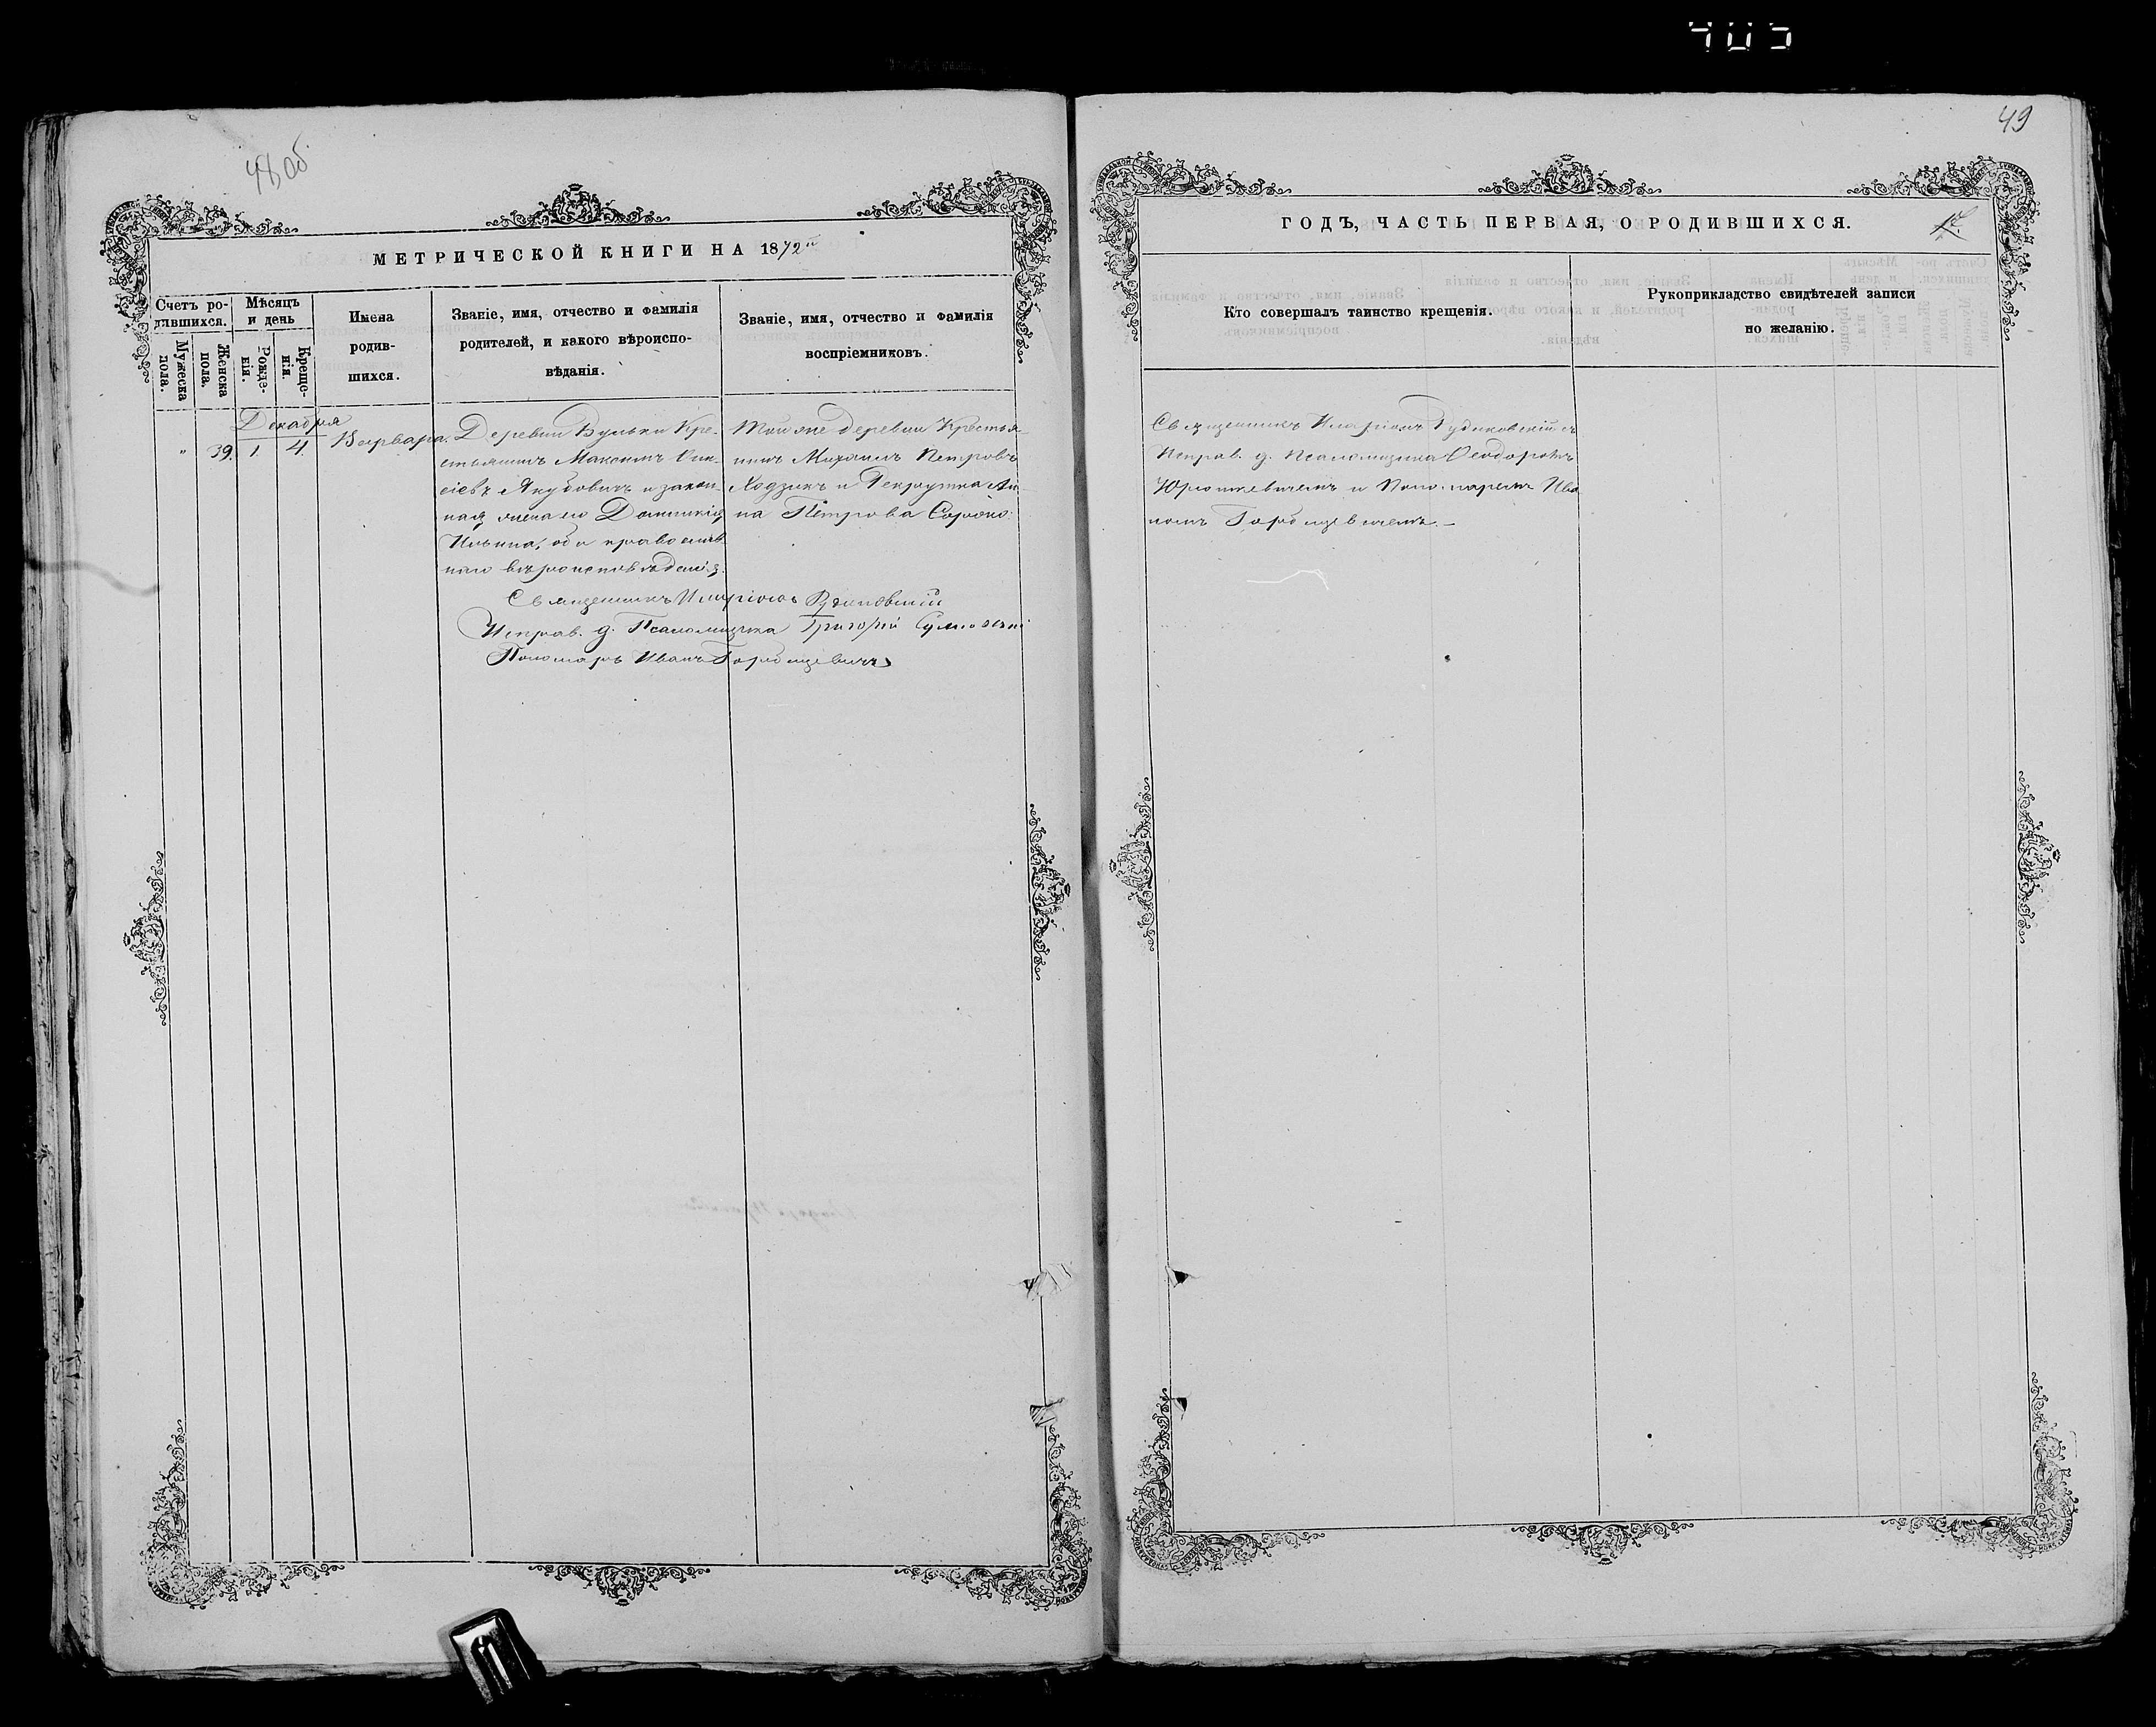 405
48 об
МЕТРИЧЕСКОЙ КНИГИ НА 1872й
Счетъ ро-
дившихся.
Мужеска
пола.
Женска
пола.
Мѣсяцъ
и день
Рожде-
нія.
Креще-
нія.
Имена
родив-
шихся.
Званіе, имя, отчество и фамилія
родителей, и какого вѣроиспо-
вѣданія.
Званіе, имя, отчество и фамилія
воспріемниковъ.
Декабря
" 39. 1 4. Варвара.
Деревни Вульки Кре-
стьянинъ Максимъ
Якубовичъ и закон-
ная жена его Домникія
Ильина, оба православ
наго вѣроисповѣданія.
Той же деревни Крестья-
нинъ Михаилъ Петровъ
Ходзикъ и Рекрутка Ан-
на Петрова
Священникъ Иларіонъ
Исправ. д. Псаломщика Григорій
Пономарь Иванъ Горбацевичъ
49
ГОДЪ, ЧАСТЬ ПЕРВАЯ, О РОДИВШИХСЯ.
Кто совершалъ таинство крещенія.
Рукоприкладство свидѣтелей записи
по желанію.
Священникъ Иларіонъ Рудаковскій съ
Исправ. д. Псаломщика Ѳеодоромъ
Юрашкевичемъ и Пономаремъ Ива
номъ Горбацевичемъ. —